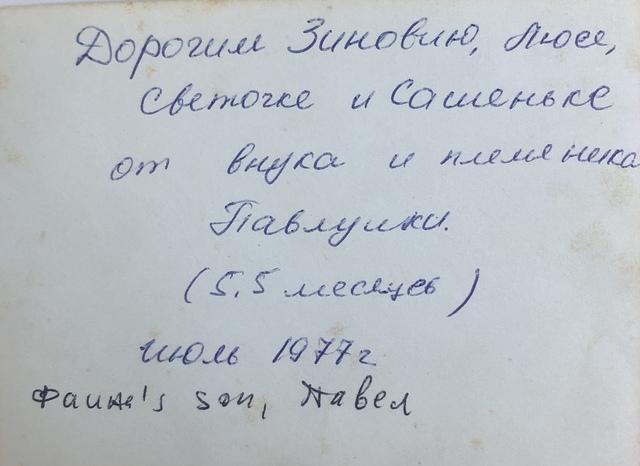 Дорогим Зиновию, Люсе,
Светочке и Сашеньке
от внука и племеника
Павлушки.
(5,5 месяцев)
июль 1977г
Фаина's son, Павел